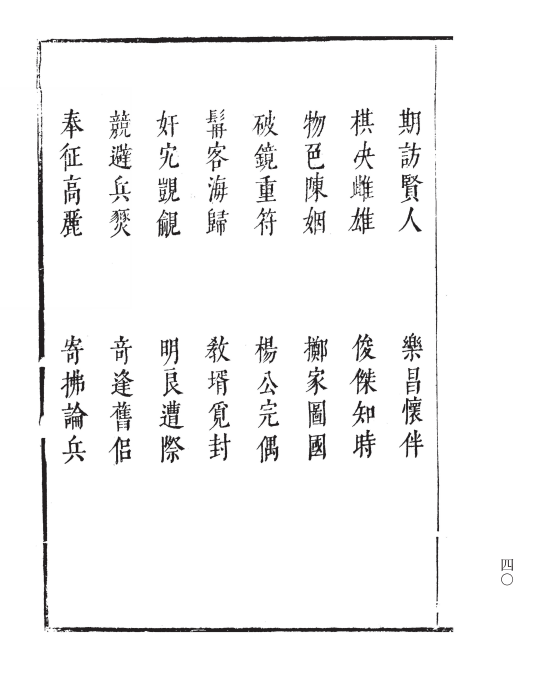 期訪賢人　樂昌懷伴
棋决雌雄　俊傑知時
物色陳姻　擲家圖國
破鏡重符　楊公完偶
髯客海歸　教壻覓封
奸宄覬覦　明良遭際
競避兵燹　奇逢舊侣
奉征高麗　寄拂論兵
四〇